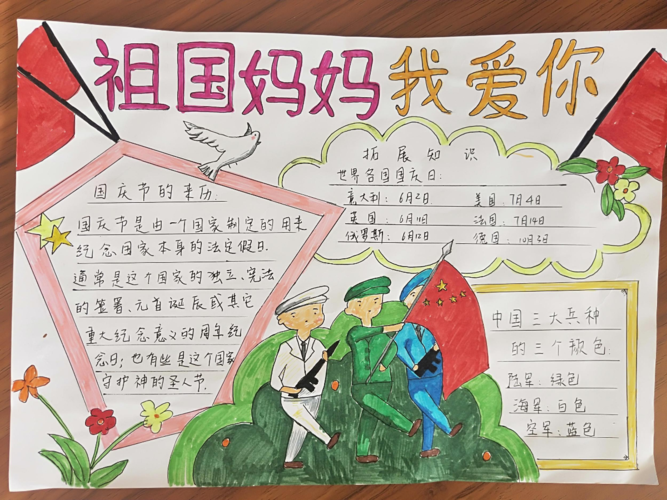 祖国妈妈我爱你
国庆节的来历:
国庆节是由一个国家制定的用来
纪念国家本身的法定假日.
通常是这个国家的独立、宪法
的签署、元首诞辰或其它
重大纪念意义的周年纪
念日;也有些是这个国家
守护神的圣人节.
拓展知识
世界各国国庆日:
意大利: 6月2日 美国: 7月4日
英国: 6月11日 法国: 7月14日
俄罗斯: 6月12日 德国: 10月3日
中国三大兵种
的三个颜色:
陆军: 绿色
海军: 白色
空军: 蓝色